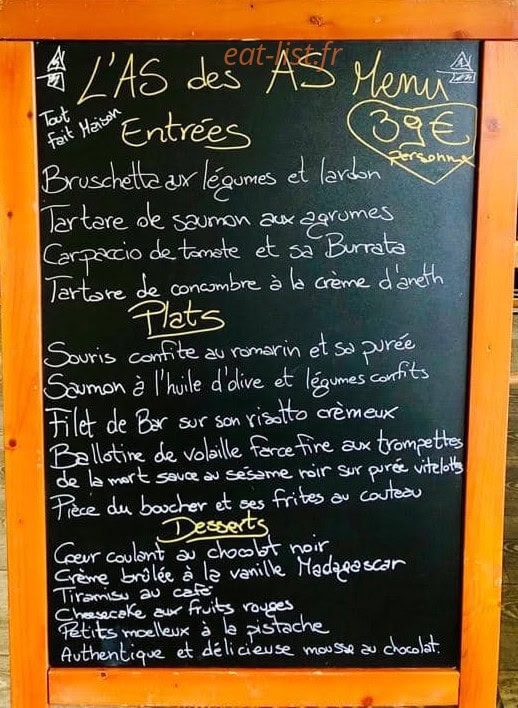 eat-list.fr
L'AS des AS Menu
Tout
fait Maison
39€
personne
Entrées
Bruschetta aux légumes et lardon
Tartare de saumon aux agrumes
Carpaccio de tomate et sa Burrata
Tartare de concombre à la crème d'aneth
Plats
Souris confite au romarin et sa purée
Saumon à l'huile d'olive et légumes confits
Filet de Bar sur son risotto crèmeux
Ballotine de volaille farce fine aux trompettes
de la mort sauce au sésame noir sur purée vitelotte
Pièce du boucher et ses frites au couteau
Desserts
Cœur coulant au chocolat noir
Crème brûlée à la vanille Madagascar
Tiramisu au café
Cheesecake aux fruits rouges
Petits moelleux à la pistache
Authentique et délicieuse mousse au chocolat.